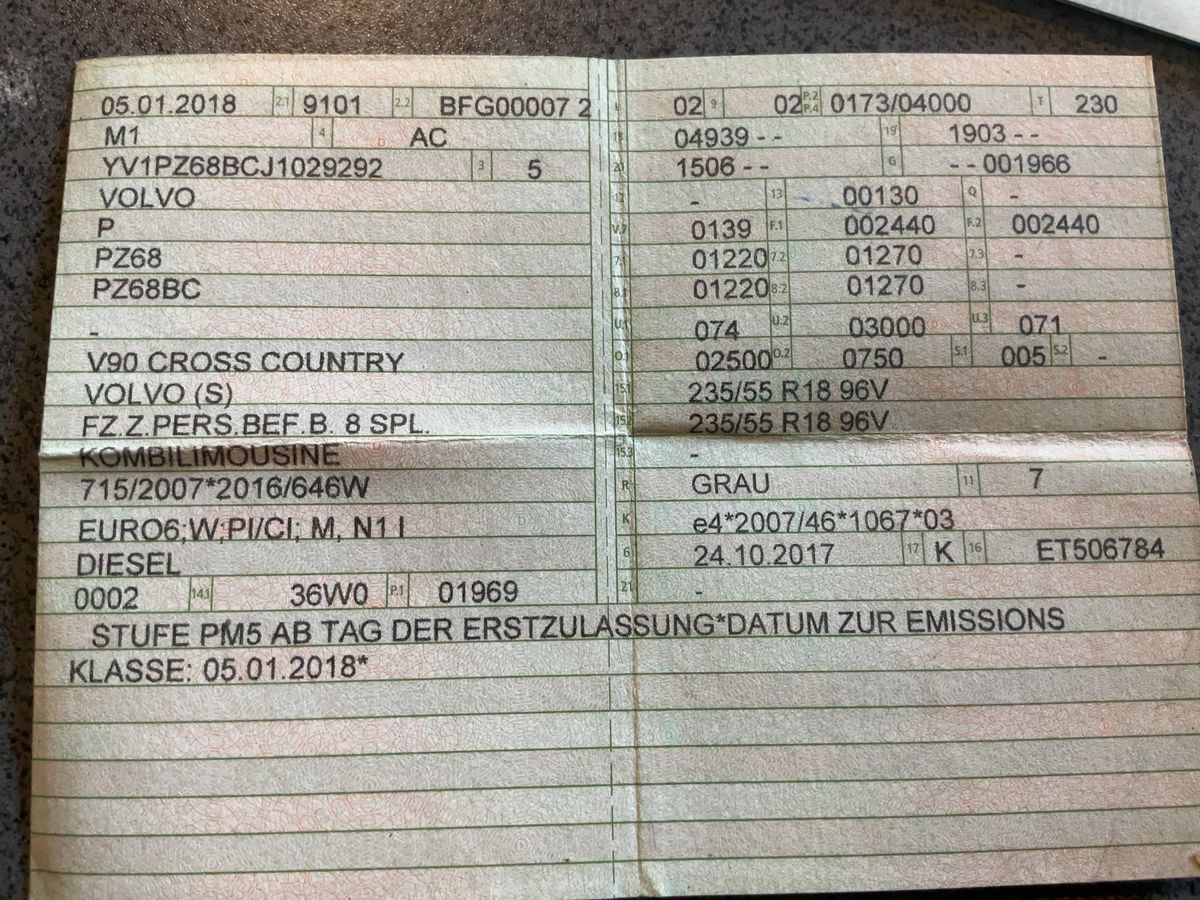 05.01.2018 2.1 9101 2.2 BFG00007 2
M1 4 AC
YV1PZ68BCJ1029292 3 5
VOLVO
P
PZ68
PZ68BC
-
V90 CROSS COUNTRY
VOLVO (S)
FZ.Z.PERS.BEF.B. 8 SPL.
KOMBILIMOUSINE
715/2007*2016/646W
EURO6;W;PI/CI; M, N1 I
DIESEL
0002 14.1 36W0 P.1 01969
L 02 9 02 P.2 P.4 0173/04000 T 230
18 04939 - - 19 1903 - -
20 1506 - - G - - 001966
12 - 13 00130 Q -
V.7 0139 F.1 002440 F.2 002440
7.1 01220 7.2 01270 7.3 -
8.1 01220 8.2 01270 8.3 -
U.1 074 U.2 03000 U.3 071
O.1 02500 O.2 0750 S.1 005 S.2 -
15.1 235/55 R18 96V
15.2 235/55 R18 96V
15.3 -
R GRAU 11 7
K e4*2007/46*1067*03
6 24.10.2017 17 K 16 ET506784
21 -
STUFE PM5 AB TAG DER ERSTZULASSUNG*DATUM ZUR EMISSIONS
KLASSE: 05.01.2018*